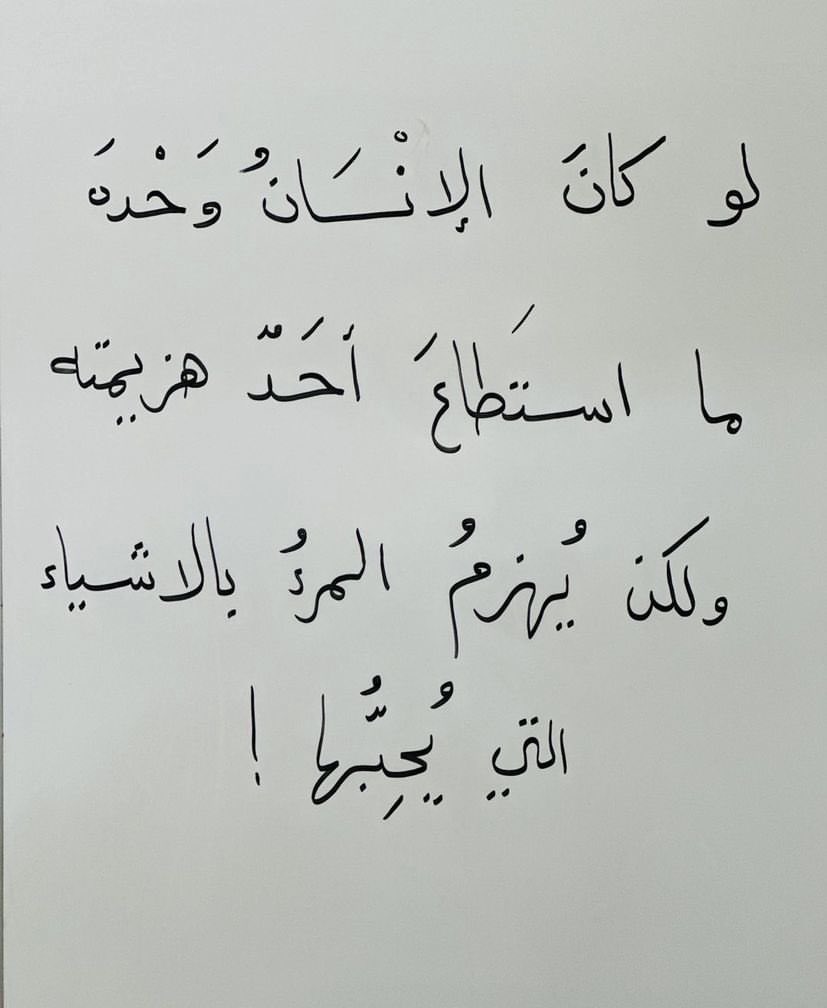 لو كانَ الإنْسَانُ وَحْدهَ
ما استَطاعَ أحَدّ هزيمته
ولكن يُهزمُ المرءُ بالاشياء
التي يُحِبُّها !